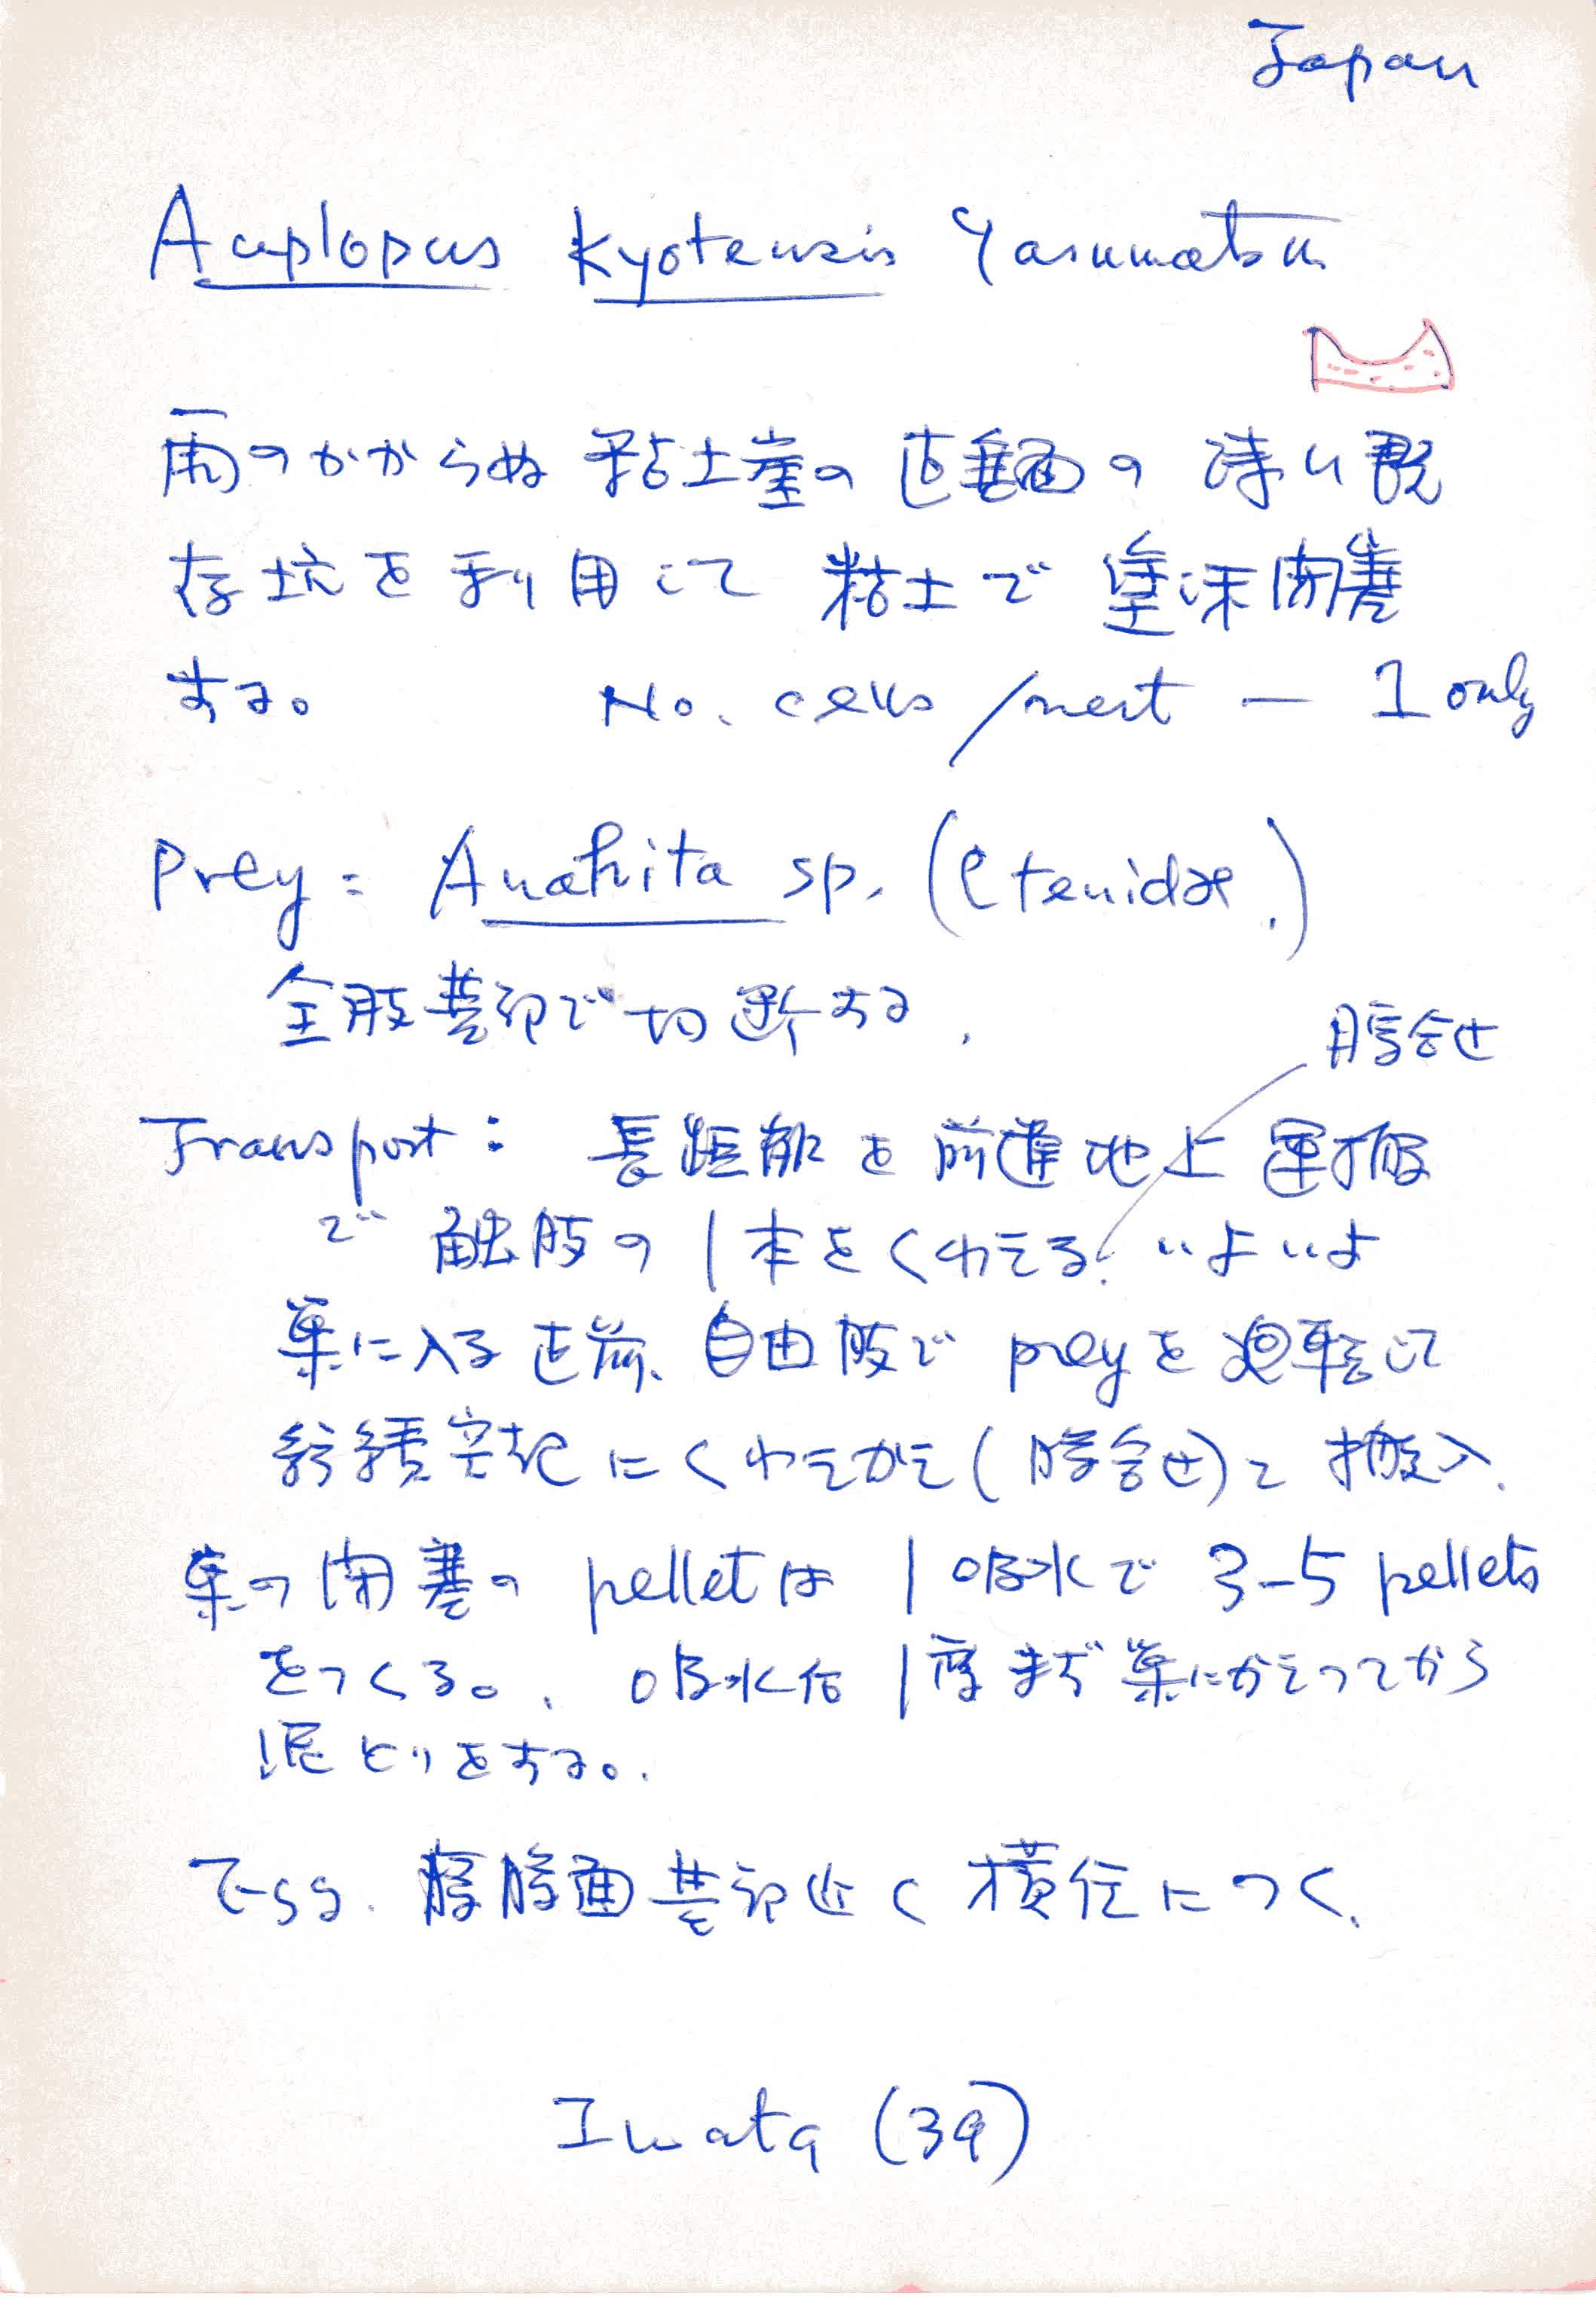 Japan
Auplopus kyotensis Yasumatsu
雨のかからぬ粘土崖の直垂面の浅い既
存坑を利用して粘土で塗沫閉塞
する。 No. cells/nest — 1 only
Prey = Anahita sp. (Ctenidae.)
全肢基部で切断する.
腹合せ
Transport: 長距離を前進地上運搬
で触肢の1本をくわえる. いよいよ
巣に入る直前、自由肢でpreyを廻転して
紡績突起にくわえかえ(腹合せ)て搬入.
巣の閉塞のpelletは1吸水で3–5 pellets
をつくる。. 吸水后1度まず巣にかえってから
泥とりをする。.
Egg. 腹背面基部近く横位につく.
Iwata (39)